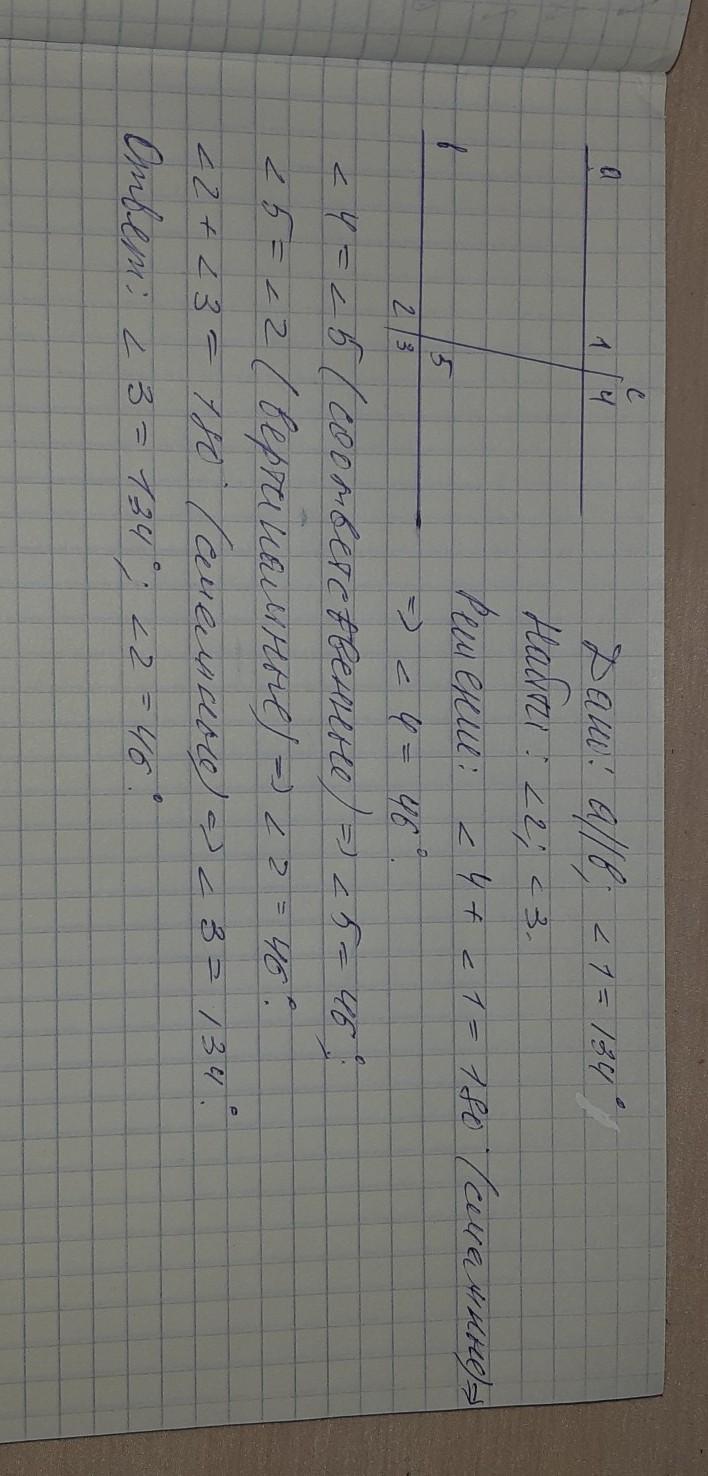 a
c
1
4
в
5
2
3
Дано: a||в; <1=134°
Найти: <2; <3.
Решение: <4+<1=180°(смежные)=>
=> <4=46°.
<4=<5(соответственные)=><5=46°.
<5=<2(вертикальные)=><2=46°.
<2+<3=180°(смежные)=><3=134°.
Ответ: <3=134°; <2=46°.